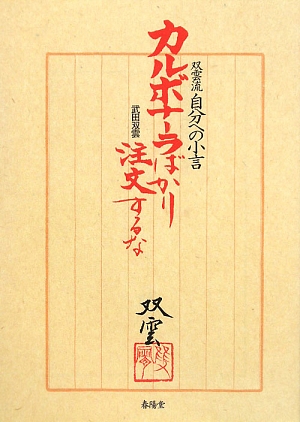 双雲流・自分への小言
カルボナーラばかり
注文するな
武田双雲
双雲
春陽堂